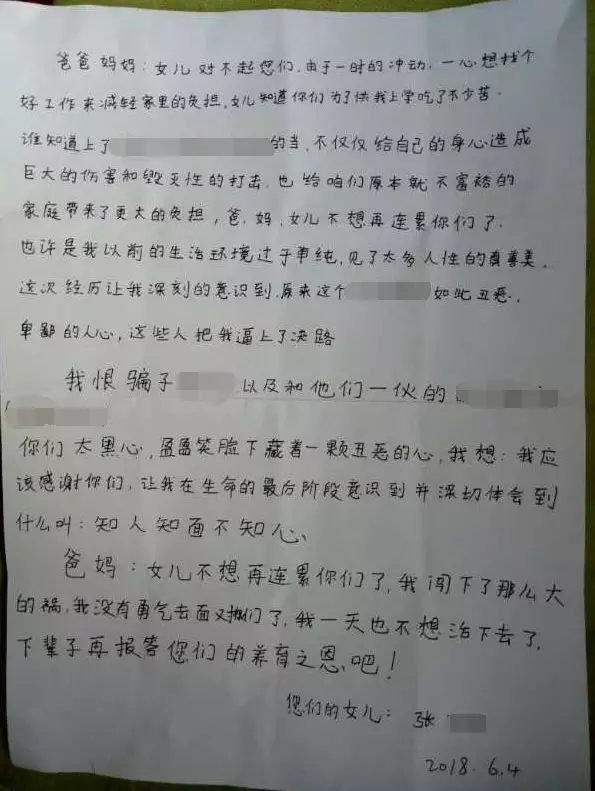 爸爸妈妈：女儿对不起您们．由于一时的冲动．一心想找个
好工作来减轻家里的负担．女儿知道你们为了供我上学吃了不少苦．
谁知道上了 的当．不仅仅给自己的身心造成
巨大的伤害和毁灭性的打击．也给咱们原本就不富裕的
家庭带来了更大的负担，爸．妈．女儿不想再连累你们了．
也许是我以前的生活环境过于单纯．见了太多人性的真善美．
这次经历让我深刻的意识到．原来这个 如此丑恶，
卑鄙的人心，这些人把我逼上了决路
我恨骗子 以及和他们一伙的
你们太黑心，盈盈笑脸下藏着一颗丑恶的心，我想：我应
该感谢你们，让我在生命的最后阶段意识到并深切体会到
什么叫：知人知面不知心、
爸妈：女儿不想再连累你们了，我闯下了那么大
的祸，我没有勇气去面对你们了，我一天也不想活下去了，
下辈子再报答您们的养育之恩、吧！
您们的女儿：张
2018.6.4